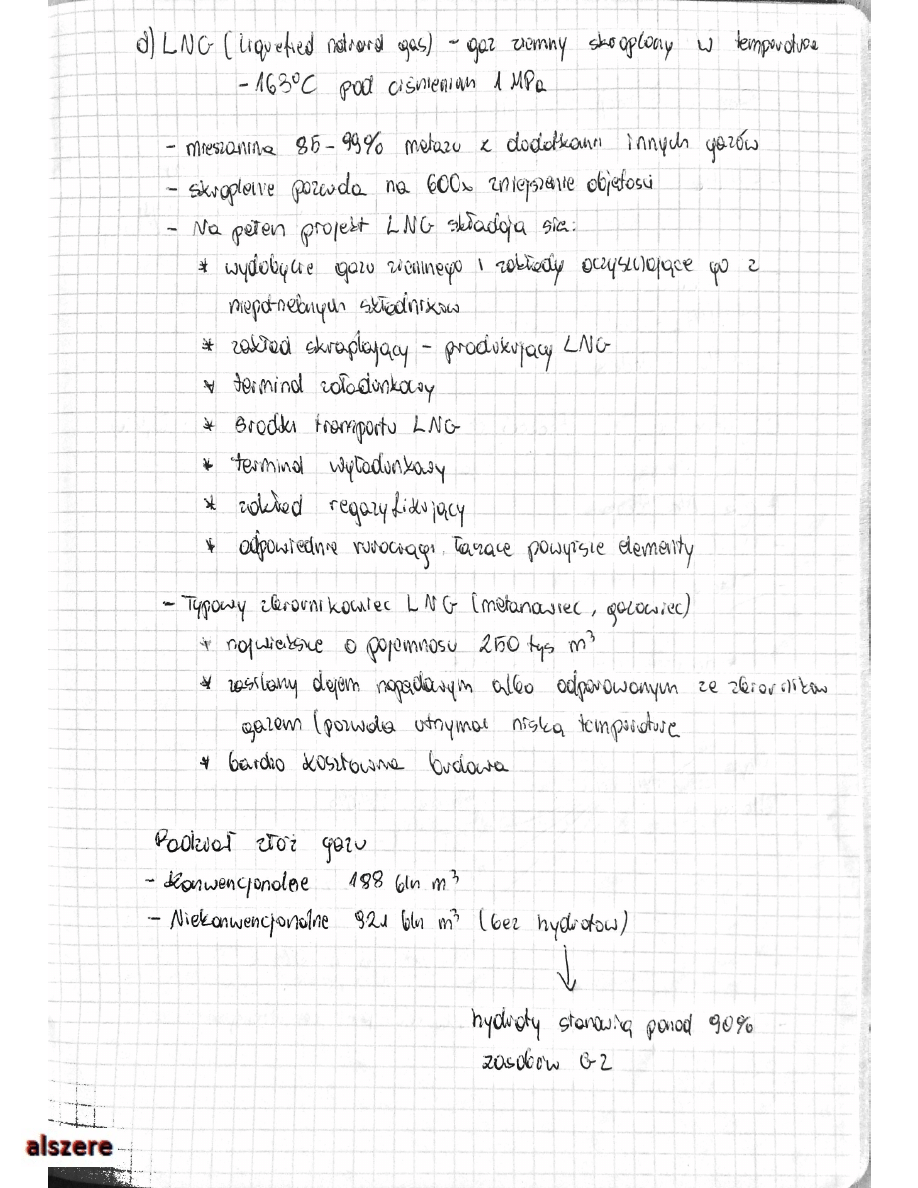 d) LNG (liquefied natural gas) - gaz ziemny skroplony w temperaturze
-163°C pod ciśnieniem 1 MPa
- mieszanina 85-99% metanu z dodatkami innych gazów
- skroplenie pozwala na 600x zniejszenie objętości
- Na pełen projekt LNG składają się:
* wydobycie gazu ziemnego i zakłady oczyszczające go z
niepotrzebnych składników
* zakład skraplający - produkujący LNG
* terminal załadunkowy
* środki transportu LNG
* terminal wyładunkowy
* zakład regazyfikujący
* odpowiednie rurociągi łączące powyższe elementy
- Typowy zbiornikowiec LNG (metanowiec, gazowiec)
* największe o pojemności 250 tys m³
* zasilany olejem napędowym albo odparowanym ze zbiorników
gazem (pozwala utrzymać niską temperaturę
* bardzo kosztowna budowa
Podział złóż gazu
- Konwencjonalne 188 bln m³
- Niekonwencjonalne 921 bln m³ (bez hydratów)
hydraty stanowią ponad 90%
zasobów GZ
alszere